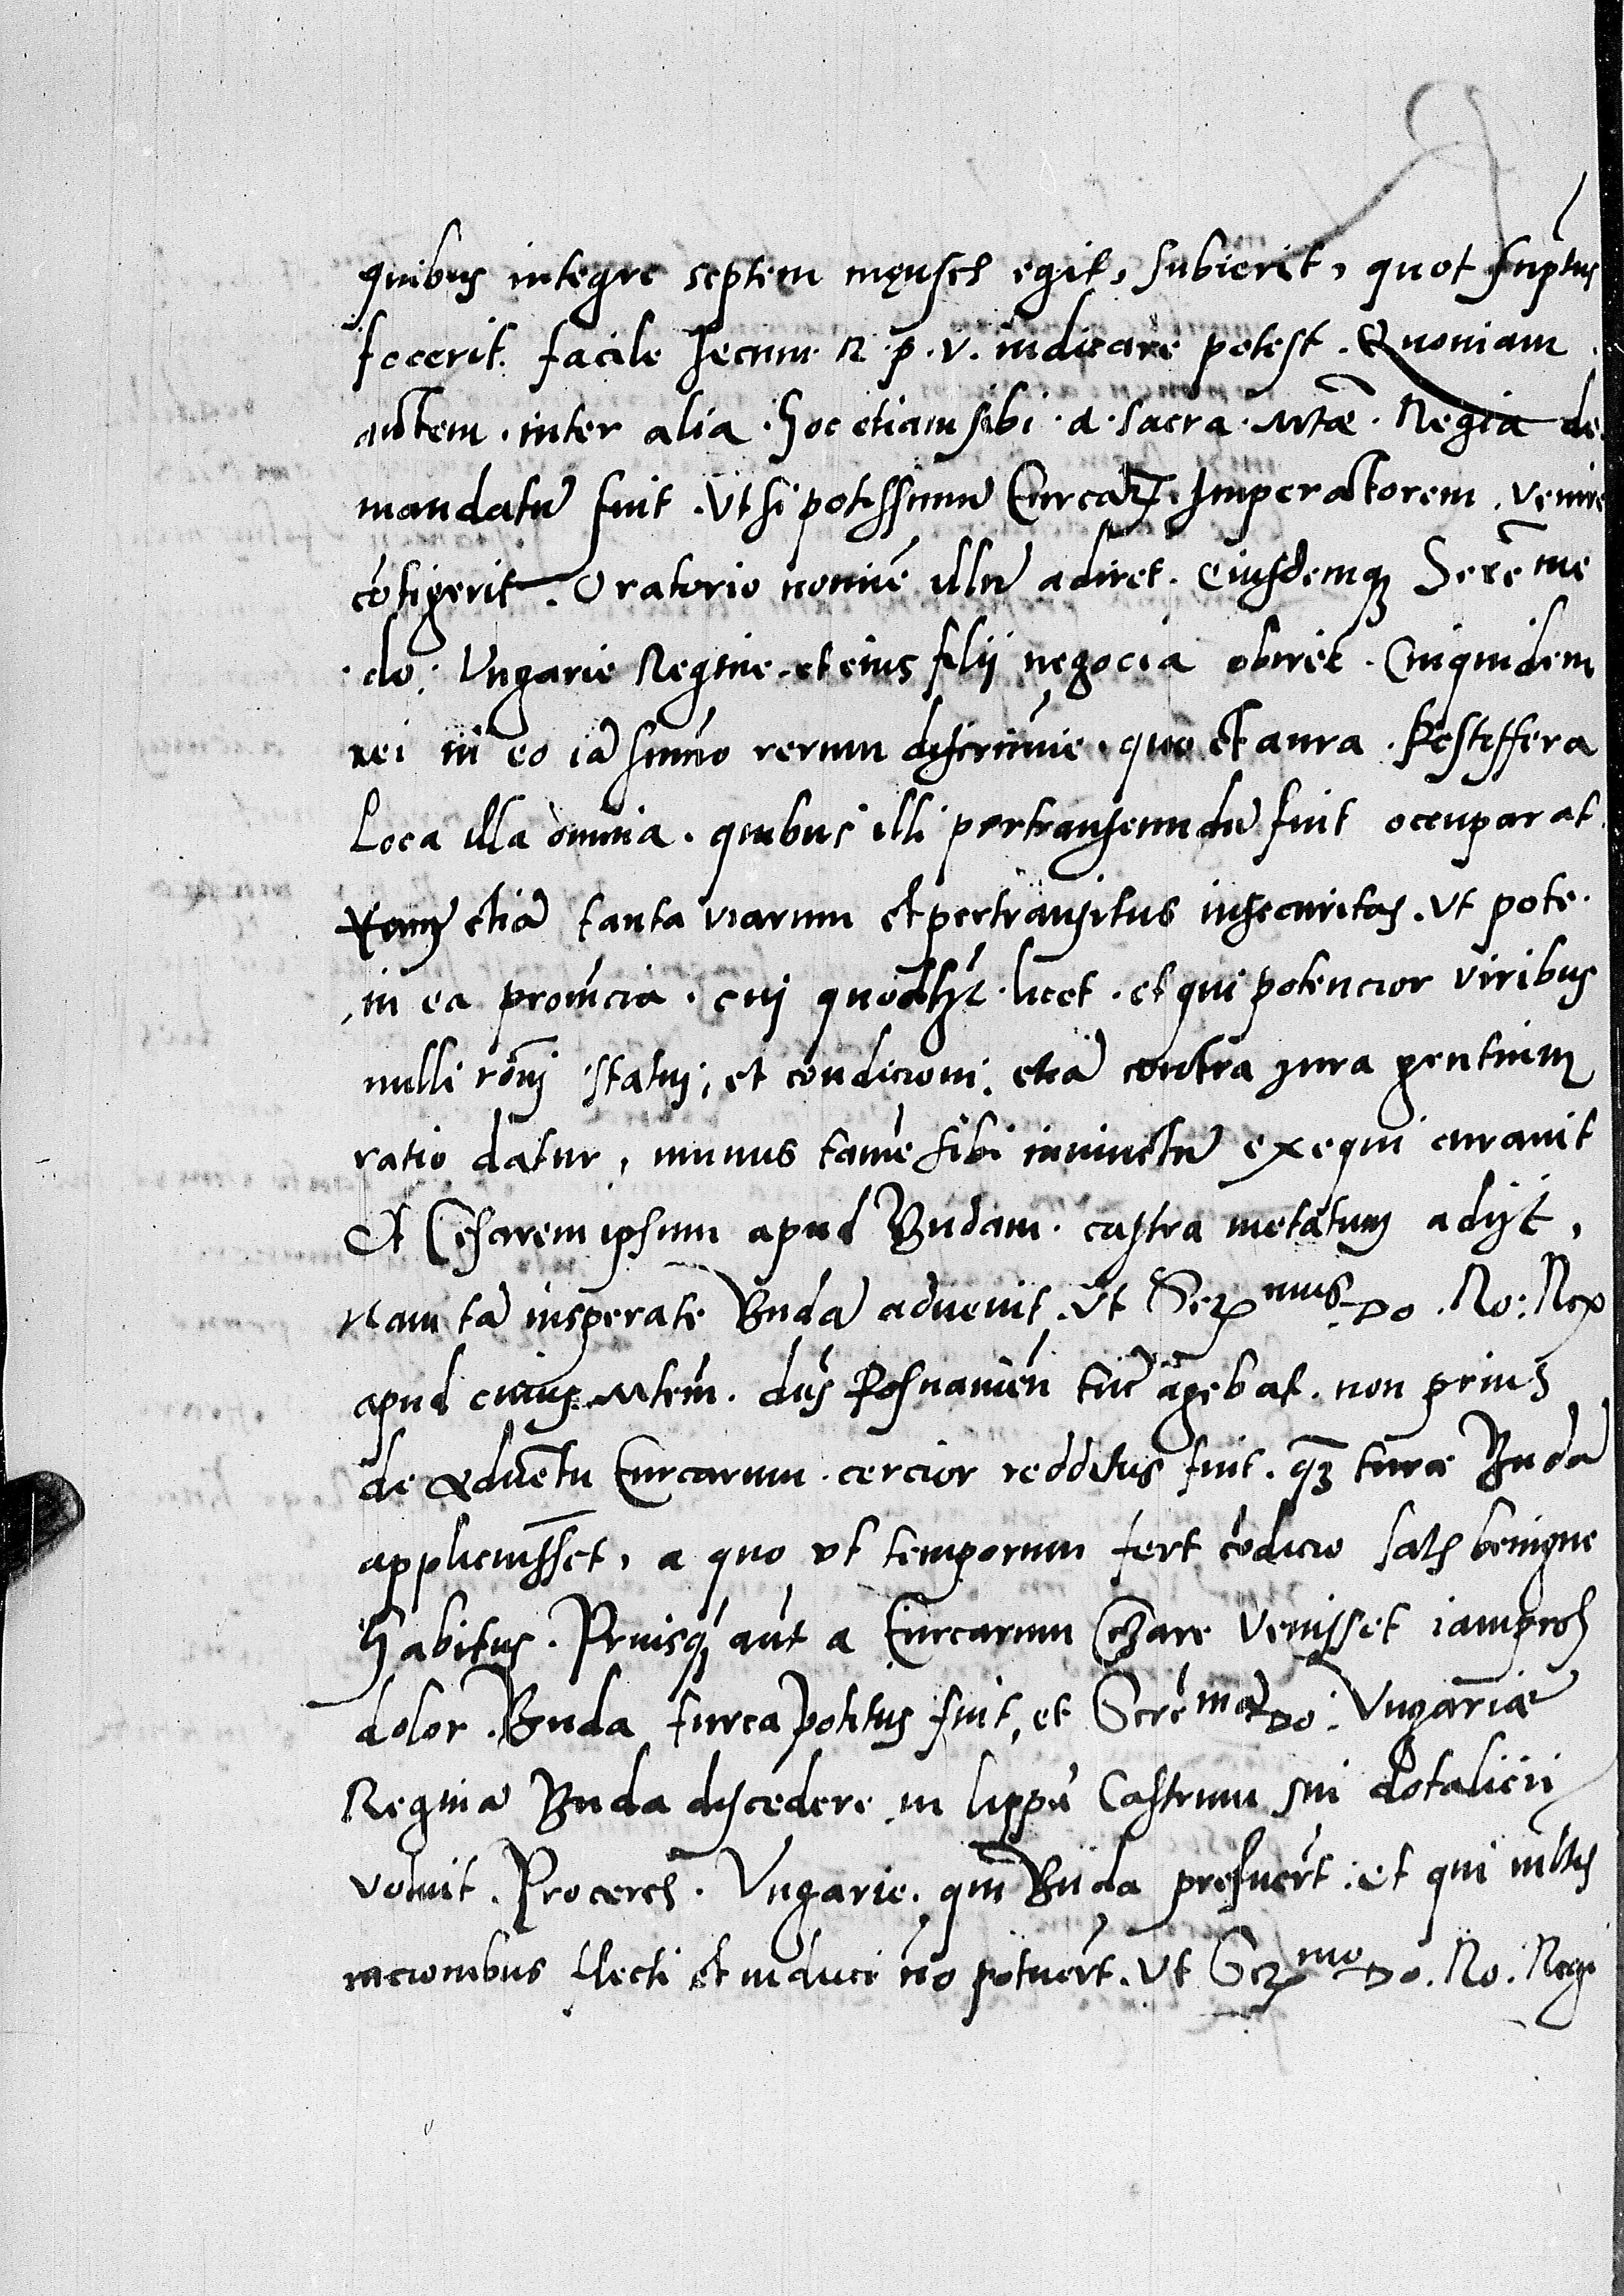 quibus integre septem menses egit, subierit, quot su̅ptus
fecerit. facile secum R. p. v. iudicare potest. Quoniam
autem. inter alia. hoc etiam sibi. a. sacra. Mtae. Regia de
mandatu̅ fuit. Vt si potissimu̅ Turcar̅. Imperatorem. venire
co̅tigerit. Oratorio nomine̅ illu̅ adiret. Eiusdemq3 Sere̅me
do: Vngarie Regine. et eius filij negocia obiret. Cuiquidem
rei in eo ia̅ sum̅o rerum discrimine. quo et aura. Pestiffera
Loca illa omnia. quibus illi pertranseundu̅ fuit occuparat.
etia̅ tanta viarum et pertransitus insecuritas. vt pote.
in ea prouincia. cui quodlibet. licet. et qui potencior viribus
nulli ro̅ni statui, et condicioni. etia̅ contra iura gentium
ratio datur, munus tame̅ sibi iniunctu̅ exequi curauit
Et Cesarem ipsum apud Budam. castra metatum adijt,
Nam ta̅ insperate Buda̅ aduenit. Vt Ser mus Do. Ro: Rex
apud cuius Mtem. dn̅s Posnanien̅ tu̅c agebat. non prius
de adue̅tu Turcarum. cercior redditus fuit. q̅3 turcae Buda̅
applicuisset, a quo vt temporum fert co̅dicio satis benigne
habitus. Priusq̅ aut̅ a Turcarum Cesare venisset iam proh
dolor. Buda turca potitus fuit, et Sere̅ma̅ Do: Vngariae
Regina̅ Buda discedere in lippa̅ Castrum sui dotalicii
voluit. Proceres. Vngarie. qui Buda prefuer̅t: et qui multis
racionibus flecti et induci no̅ potuer̅t. Vt Ser mo Do. Ro. Regi